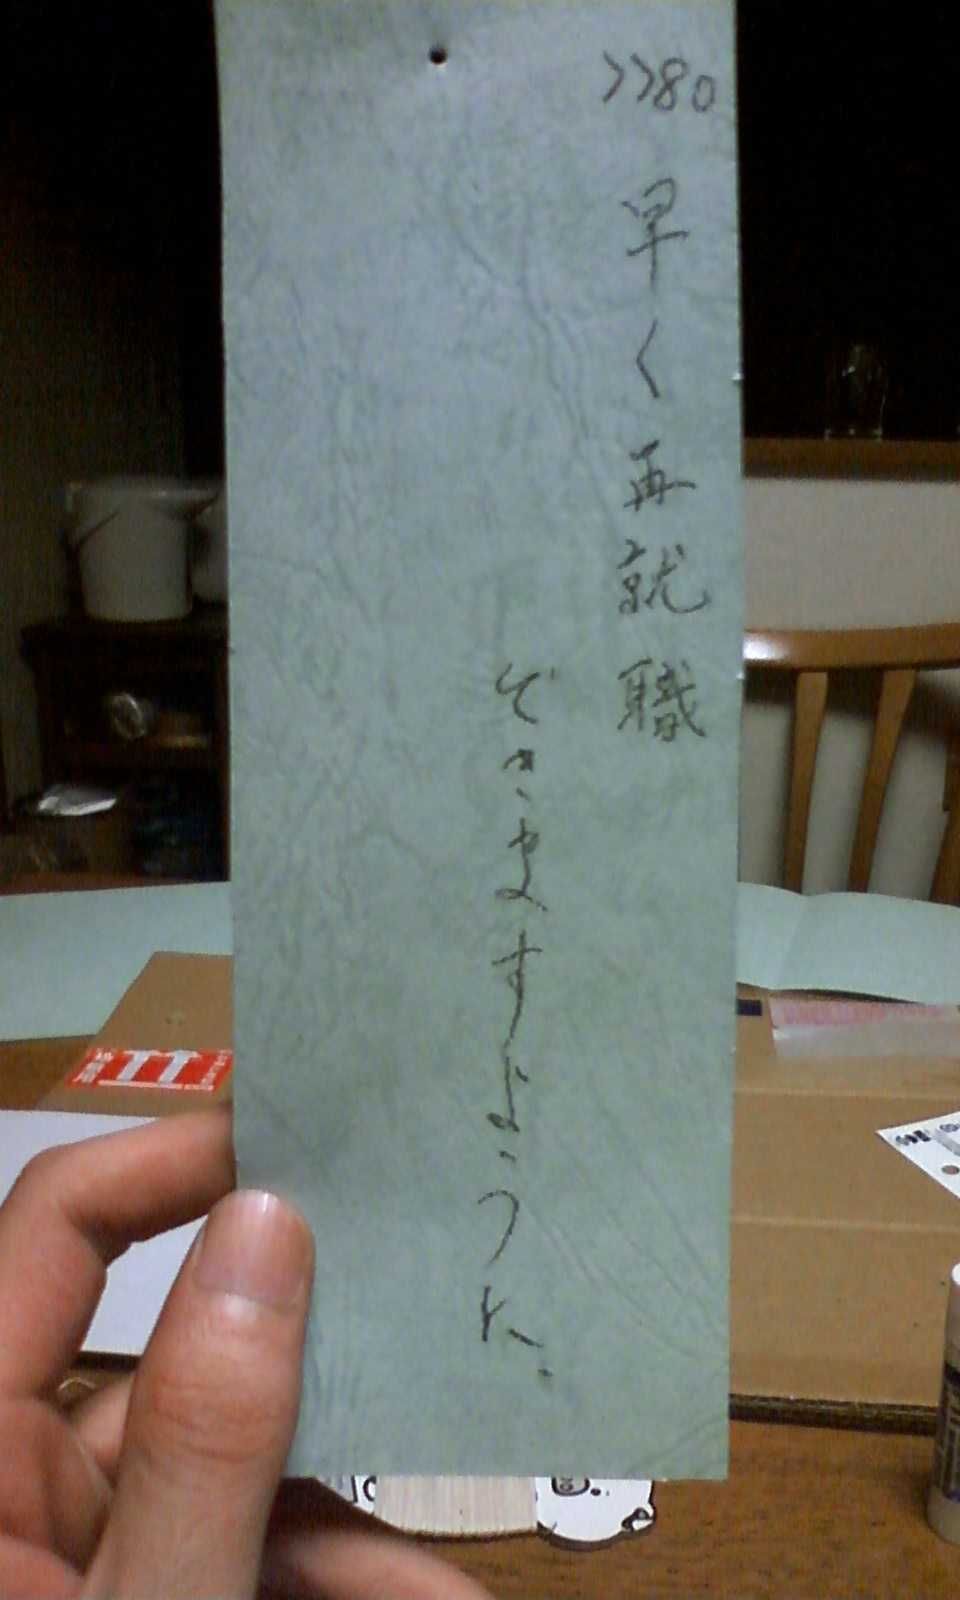 >>80
早く再就職
できますように。